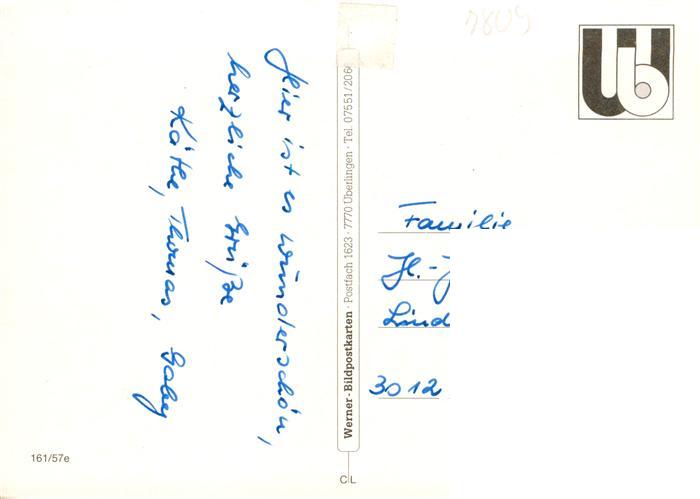 Hier ist es wunderschön,
herzliche Grüße
Käthe, Thomas, Gaby
161/57e
Werner-Bildpostkarten · Postfach 1623 · 7770 Überlingen · Tel. 07551/206
C L
7809
Familie
H.-J
Lind
3012